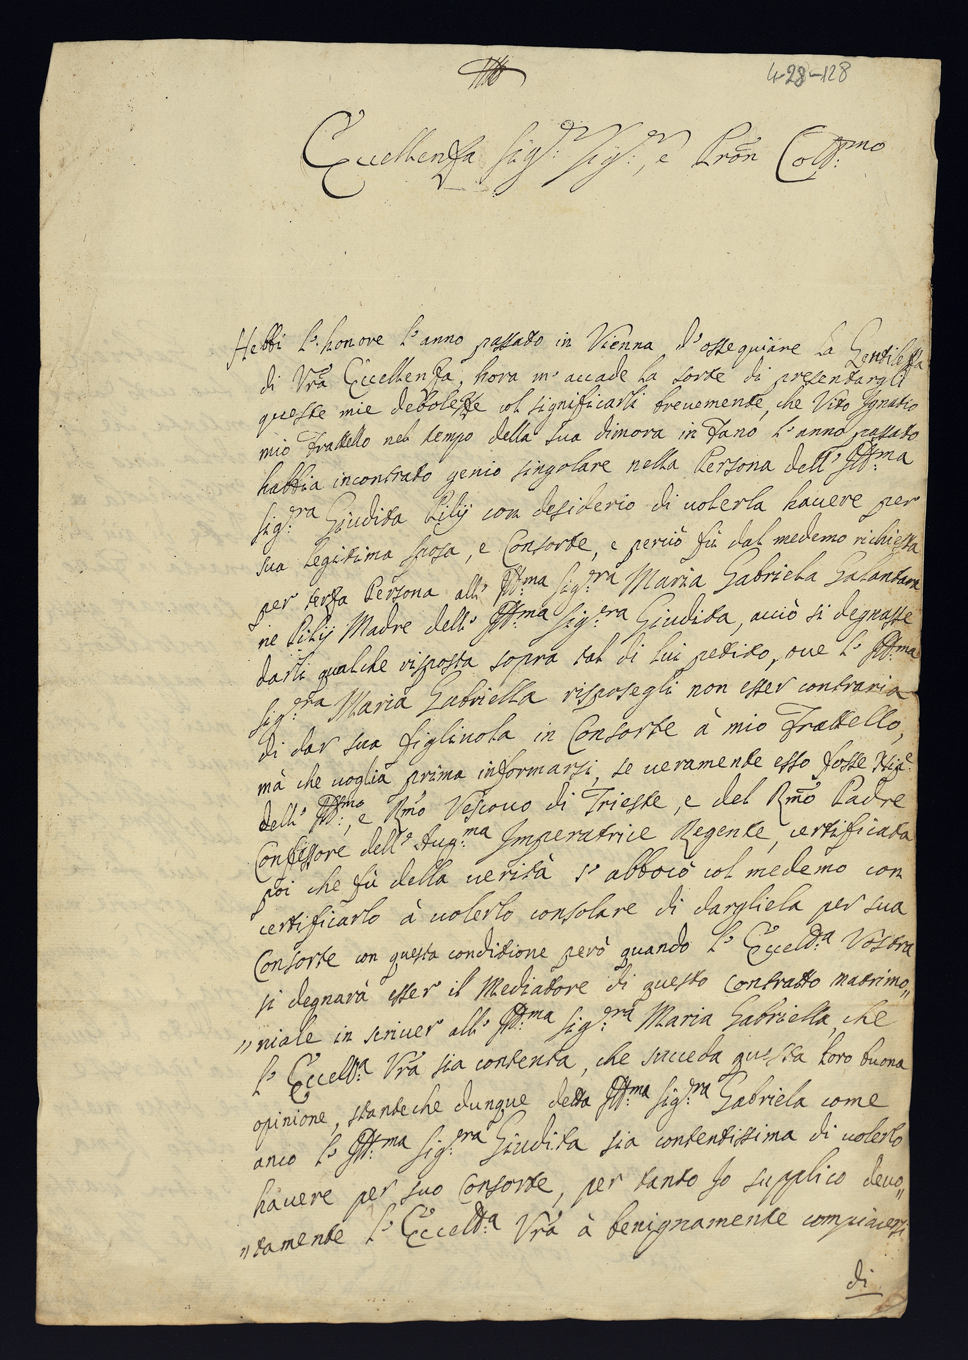 4-28-128
Eccellenza Sig.r Sig.r, e Pron Coll.mo
Hebbi l'honore l'anno passato in Vienna d'ossequiare la Gentilezza
di Vrã Eccellenza, hora m'accade la sorte di presentargli
queste mie debolezze col significarli brevemente, che Vito Ignatio
mio Frattello nel tempo della sua dimora in Fano l'anno passato
habbia incontrato genio singolare nella Persona dell' Ill.ma
Sig.ra Giudita Pilij con desiderio di volerla havere per
sua legitima sposa, e Consorte, e perciò fù dal medemo richiesta
per terza Persona all' Ill.ma Sig.ra Maria Gabriela Galantara
ne Pilij Madre dell' Ill.ma Sig.ra Giudita, acciò si degnasse
darli qualche risposta sopra tal di lui petito, ove l' Ill.ma
Sig.ra Maria Gabriella risposegli non esser contraria
di dar sua figlivola in Consorte à mio Frattello,
mà che voglia prima informarsi, se veramente esso fosse Nip.e
dell' Ill.mo, e Rmõ Vescovo di Trieste, e del Rmõ Padre
Confessore dell' Aug.ma Imperatrice Regente, certificata
poi che fù della verità s'abbociò col medemo con
certificarlo à volerlo consolare di dargliela per sua
Consorte con questa conditione però quando l' Eccel.za Vostra
si degnarà esser il Mediatore di questo contratto matrimo„
„niale in scriver all' Ill.ma Sig.ra Maria Gabriella, che
l' Eccell.za Vrã sia contenta, che succeda questa loro buona
opinione, stanteche dunque detta Ill.ma Sig.ra Gabriela come
anco l' Ill.ma Sig.ra Giudita sia contentissima di volerlo
havere per suo Consorte, per tanto Io supplico devo„
„tamente l' Eccell.za Vrã à benignamente compiacersi
di